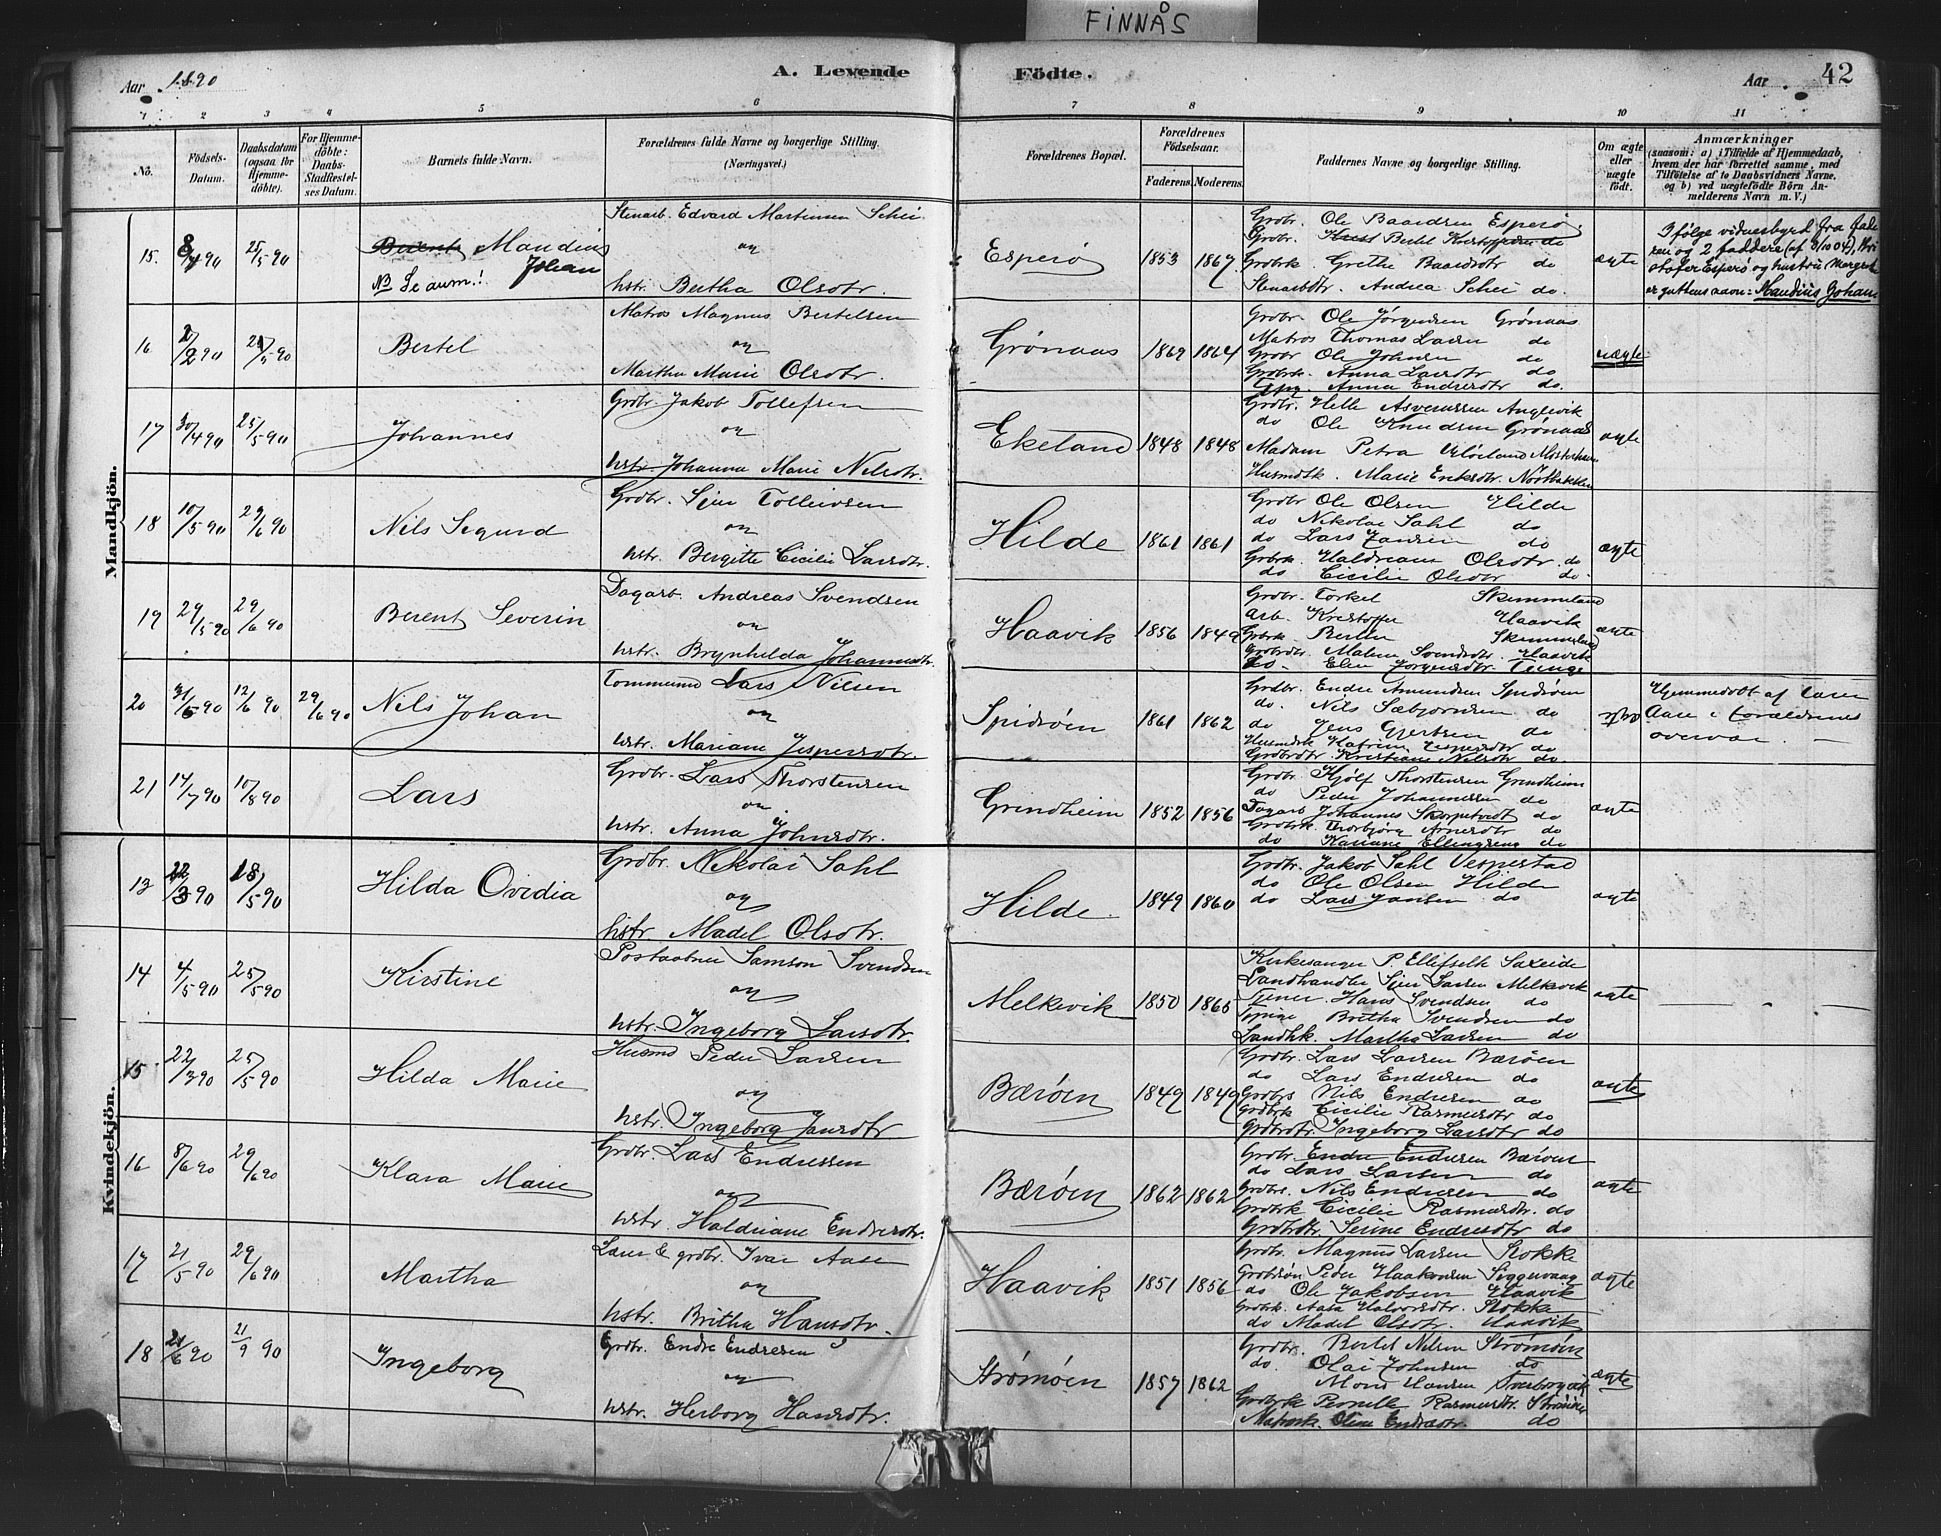 FINNÅS
Aar 1890
A. Levende Födte.
Aar
42
1 2 3 4 5 6 7 8 9 10 11
No.
Födsels-Datum.
Daabsdatum (ogsaa for Hjemmedöbte).
For Hjemmedöbte: Daabs-Stadfestelses Datum.
Barnets fulde Navn.
Forældrenes fulde Navne og borgerlige Stilling. (Næringsvei.)
Forældrenes Bopæl.
Forældrenes Födselsaar.
Faderens. Moderens.
Faddernes Navne og borgerlige Stilling.
Om ægte eller uægte födt.
Anmærkninger
(saasom: a) i Tilfælde af Hjemmedaab, hvem der har forrettet samme, med Tilföielse af to Daabsvidners Navne, og b) ved uægtefödte Börn Anmelderens Navn m. V.)
Mandkjön.
15. 8/4 90 25/5 90 Berent Maudius Johan
NB Se anm!
Stenarb. Edvard Martinsen Schei
og
hstr. Bertha Olsdtr.
Esperø 1853 1867
Grdbr. Ole Baardsen Esperø
Grdbr. Bertel Kristoffersen do
Grdbrk. Grethe Baardsdtr do
Stenarbdtr. Andrea Schei do.
ægte
Ifølge vidnesbyrd fra faderen og 2 faddere (af 3/10 04), Kristofer Esperø og hustru Margrete er guttens navn: Maudius Johan
16 2/2 90 25/5 90 Bertel
Matros Magnus Bertelsen
og
Martha Marie Olsdtr.
Grønaas 1869 1864
Grdbr. Ole Jørgensen Grønaas
Matros Thomas Larsen do
Grdbr Ole Johnsen do
Grdbrk. Anna Larsdtr do
Anna Endresdtr do.
uægte
17 30/4 90 25/5 90 Johannes
Grdbr. Jakob Tollefsen
og
hstr. Johanna Marie Nilsdtr.
Ekeland 1848 1848
Grdbr. Helle Asversen Anglevik
do Ole Knudsen Grønaas
Madam Petra
Husmdsk. Marie Eriksdtr
ægte
18 10/5 90 29/6 90 Nils Segurd
Grdbr. Sjur Tolleivsen
og
hstr. Bergitte Cicilie Larsdtr.
Hilde 1861 1861
Grdbr Ole Olsen Hilde
do Nikolai Sahl do
do Lars Jansen do
Grdbrk. Haldriane Olsdtr. do
do Cicilie Olsdtr do.
ægte
19 29/5 90 29/6 90 Berent Severin
Dagarb. Andreas Svendsen
og
hstr. Brynhilda Johannesdtr.
Haavik 1856 1849
Grdbr. Torkel Skimmeland
Arb. Kristoffer Haavik
Grdbrk. Berthe Skimmeland
Grdbrdtr. Malene Svendsdtr. Haavik
do. Elen Jørgensdtr. Tenge
ægte
20 31/5 90 12/6 90 29/6 90 Nils Johan
Tømmermd Lars Nilsen
og
hstr. Mariane Jespersdtr.
Spidsøen 1861 1862
Grdbr. Endre Amundsen Spidsøen
do. Nils Sæbjørnsen do
do Jens Gjertsen do
Husmdsk Katrine Jespersdtr do
Grdbrdtr. Kristiane Nilsdtr do.
ægte
Hjemmedøbt af Lærer Aase i forældrenes overvær
21 14/7 90 10/8 90 Lars
Grdbr. Lars Thorstensen
og
hstr. Anna Johnsdtr.
Grindheim 1852 1856
Grdbr. Kjølf Thorstensen Grindheim
do Peder Johannessen do
Dagarb. Johannes Skarpetvedt do
Grdbrk. Thorbjørg Arnesdtr do
do Kariane do
ægte
Kvindekjön.
13 22/3 90 18/5 90 Hilda Ovidia
Grdbr. Nikolai Sahl
og
hstr. Madel Olsdtr.
Hilde. 1849 1860
Grdbr. Jakob Sahl Vespestad
do Ole Olsen Hilde
do Lars Jansen do
ægte
14 4/5 90 25/5 90 Kirstine
Postaabner Samson Svendsen
og
hstr. Ingeborg Larsdtr.
Melkevik 1850 1865
Kirkesanger P. Ellefseth Saxeide
Landhandler Sjur Larsen Melkevik
Tjener. Hans Svendsen do
Tjpige Britha Svendsen do
Landhk. Martha Larsen do
ægte
15 22/3 90 25/5 90 Hilda Marie
Husmd Peder Larsen
og
hstr. Ingeborg Jansdtr
Bærøen 1849 1849
Grdbr. Lars Larsen Bærøen
do Lars Endresen do
Grdbrs Nils Endresen do
Grdbrk Cicilie Rasmusdtr do
Grdbrdtr. Ingeborg Larsdtr do
ægte
16 8/6 90 29/6 90 Klara Marie
Grdbr. Lars Endresen
og
hstr. Haldriane Endresdtr.
Bærøen 1862 1862
Grdbr. Endre Endresen Bærøen
do Lars Larsen do
Grdbrs. Nils Endresen do
Grdbrk Cicilie Rasmusdtr. do
Grdbrdtr. Serine Endresdtr do
ægte
17 21/5 90 29/6 90 Martha
Lærer & grdbr. Ivar Aase
og
hstr. Britha Hansdtr.
Haavik 1851 1856
Grdbr. Magnus Larsen Stokke
Grdbrsøn Peder Haakonsen Siggervaag
do Ole Jakobsen Haavik
Grdbrk. Aasa Halvorsdtr. Stokke
do Madel Olsdtr. Haavik
ægte
18 21/6 90 21/9 90 Ingeborg
Grdbr. Endre Endresen
og
hstr. Herborg Hansdtr.
Strømøen 1857 1862
Grdbr. Bertel Nilsen Strømøen
do. Olai Johnsen do
Mons Hansen
Grdbrk Pernille Rasmusdtr. Strømøen
Matrosk. Oline Endresdtr. do
ægte